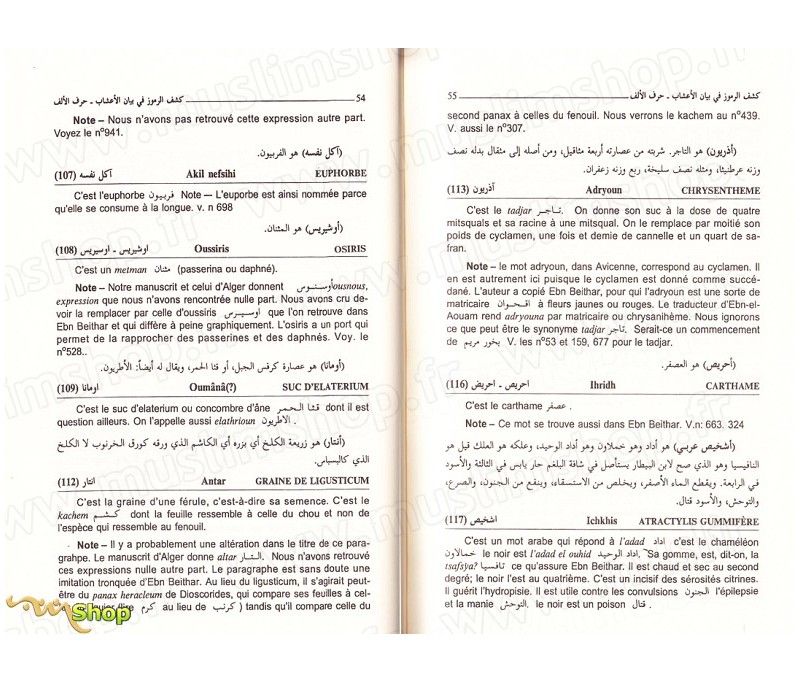 54 كشف الرموز في بيان الأعشاب ـ حرف الألف
Note – Nous n'avons pas retrouvé cette expression autre part.
Voyez le nº941.
(آكل نفسه) هو الفربيون.
(107) آكل نفسه Akil nefsihi EUPHORBE
C'est l'euphorbe فربيون Note – L'euporbe est ainsi nommée parce
qu'elle se consume à la longue. v. n 698
(أوشيريس) هو المثنان.
(108) اوشيريس ـ اوسيريس Oussiris OSIRIS
C'est un metman مثنان (passerina ou daphné).
Note – Notre manuscrit et celui d'Alger donnent ousnous,
expression que nous n'avons rencontrée nulle part. Nous avons cru de-
voir la remplacer par celle d'oussiris اوسيرس que l'on retrouve dans
Ebn Beithar et qui diffère à peine graphiquement. L'osiris a un port qui
permet de la rapprocher des passerines et des daphnés. Voy. le
nº528..
(أومانا) هو عصارة كرفس الجبل، أو قثا الحمر، ويقال له أيضاً: الأطريون.
(109) اومانا Oumânâ(?) SUC D'ELATERIUM
C'est le suc d'elaterium ou concombre d'âne قثا الحمر dont il est
question ailleurs. On l'appelle aussi elathrioun الاطريون .
(أنتار) هو زريعة الكلخ أي بزره أي الكاشم الذي ورقه كورق الخرنوب لا الكلخ
الذي كالبسباس.
(112) انتار Antar GRAINE DE LIGUSTICUM
C'est la graine d'une férule, c'est-à-dire sa semence. C'est le
kachem كشم dont la feuille ressemble à celle du chou et non de
l'espèce qui ressemble au fenouil.
Note – Il y a probablement une altération dans le titre de ce para-
grahpe. Le manuscrit d'Alger donne altar التار. Nous n'avons retrouvé
ces expressions nulle autre part. Le paragraphe est sans doute une
imitation tronquée d'Ebn Beithar. Au lieu du ligusticum, il s'agirait peut-
être du panax heracleum de Dioscorides, qui compare ses feuilles à cel-
كرم au lieu de كرنب ) tandis qu'il compare celle du
Shop
55 كشف الرموز في بيان الأعشاب ـ حرف الألف
second panax à celles du fenouil. Nous verrons le kachem au nº439.
V. aussi le nº307.
(أدريون) هو التاجر. شربته من عصارته أربعة مثاقيل، ومن أصله إلى مثقال بدله نصف
وزنه عرطنيثا، ومثله نصف سليخة، ربع وزنه زعفران.
(113) آدريون Adryoun CHRYSENTHEME
C'est le tadjar تاجر. On donne son suc à la dose de quatre
mitsquals et sa racine à une mitsqual. On le remplace par moitié son
poids de cyclamen, une fois et demie de cannelle et un quart de sa-
fran.
Note – le mot adryoun, dans Avicenne, correspond au cyclamen. Il
en est autrement ici puisque le cyclamen est donné comme succé-
dané. L'auteur a copié Ebn Beithar, pour qui l'adryoun est une sorte de
matricaire اقحوان à fleurs jaunes ou rouges. Le traducteur d'Ebn-el-
Aouam rend adryouna par matricaire ou chrysanihème. Nous ignorons
ce que peut être le synonyme tadjar تاجر. Serait-ce un commencement
de بخور مريم V. les nº53 et 159, 677 pour le tadjar.
(أحريص) هو العصفر.
(116) احريص ـ احريض Ihridh CARTHAME
C'est le carthame عصفر .
Note – Ce mot se trouve aussi dans Ebn Beithar. V.n: 663. 324
(أشخيص عربي) هو أداد وهو خملاون وهو أداد الوحيد، وعلكه هو العلك قيل هو
النافيسيا وهو الذي صح لابن البيطار يستأصل في شأفة البلغم حار يابس في الثالثة والأسود
في الرابعة. ويقطع الماء الأصفر، ويخلص من الاستسقاء، وينفع من الجنون، والصرع،
والتوحش، والأسود قتال.
(117) اشخيص Ichkhis ATRACTYLIS GUMMIFÈRE
C'est un mot arabe qui répond à l'adad اداد c'est le chaméléon
خمالاون le noir est l'adad el ouhid اداد الوحيد. Sa gomme, est, dit-on, la
tsafsya? تافسيا ce qu'assure Ebn Beithar. Il est chaud et sec au second
degré; le noir l'est au quatrième. C'est un incisif des sérosités citrines.
Il guérit l'hydropisie. Il est utile contre les convulsions الجنون l'épilepsie
et la manie التوحش. le noir est un poison قتال .